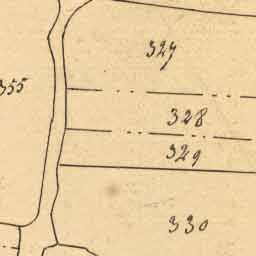 327
355
328
329
330